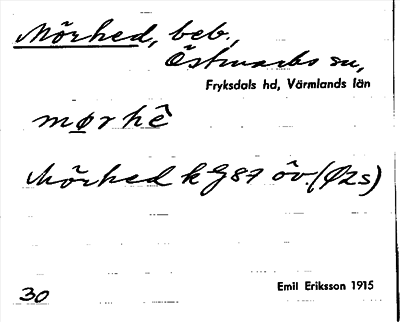 Mörhed, beb.,
Östmarks sn,
Fryksdals hd, Värmlands län
mørhê
Mörhed k G87 öv. (Ø2s)
30
Emil Eriksson 1915